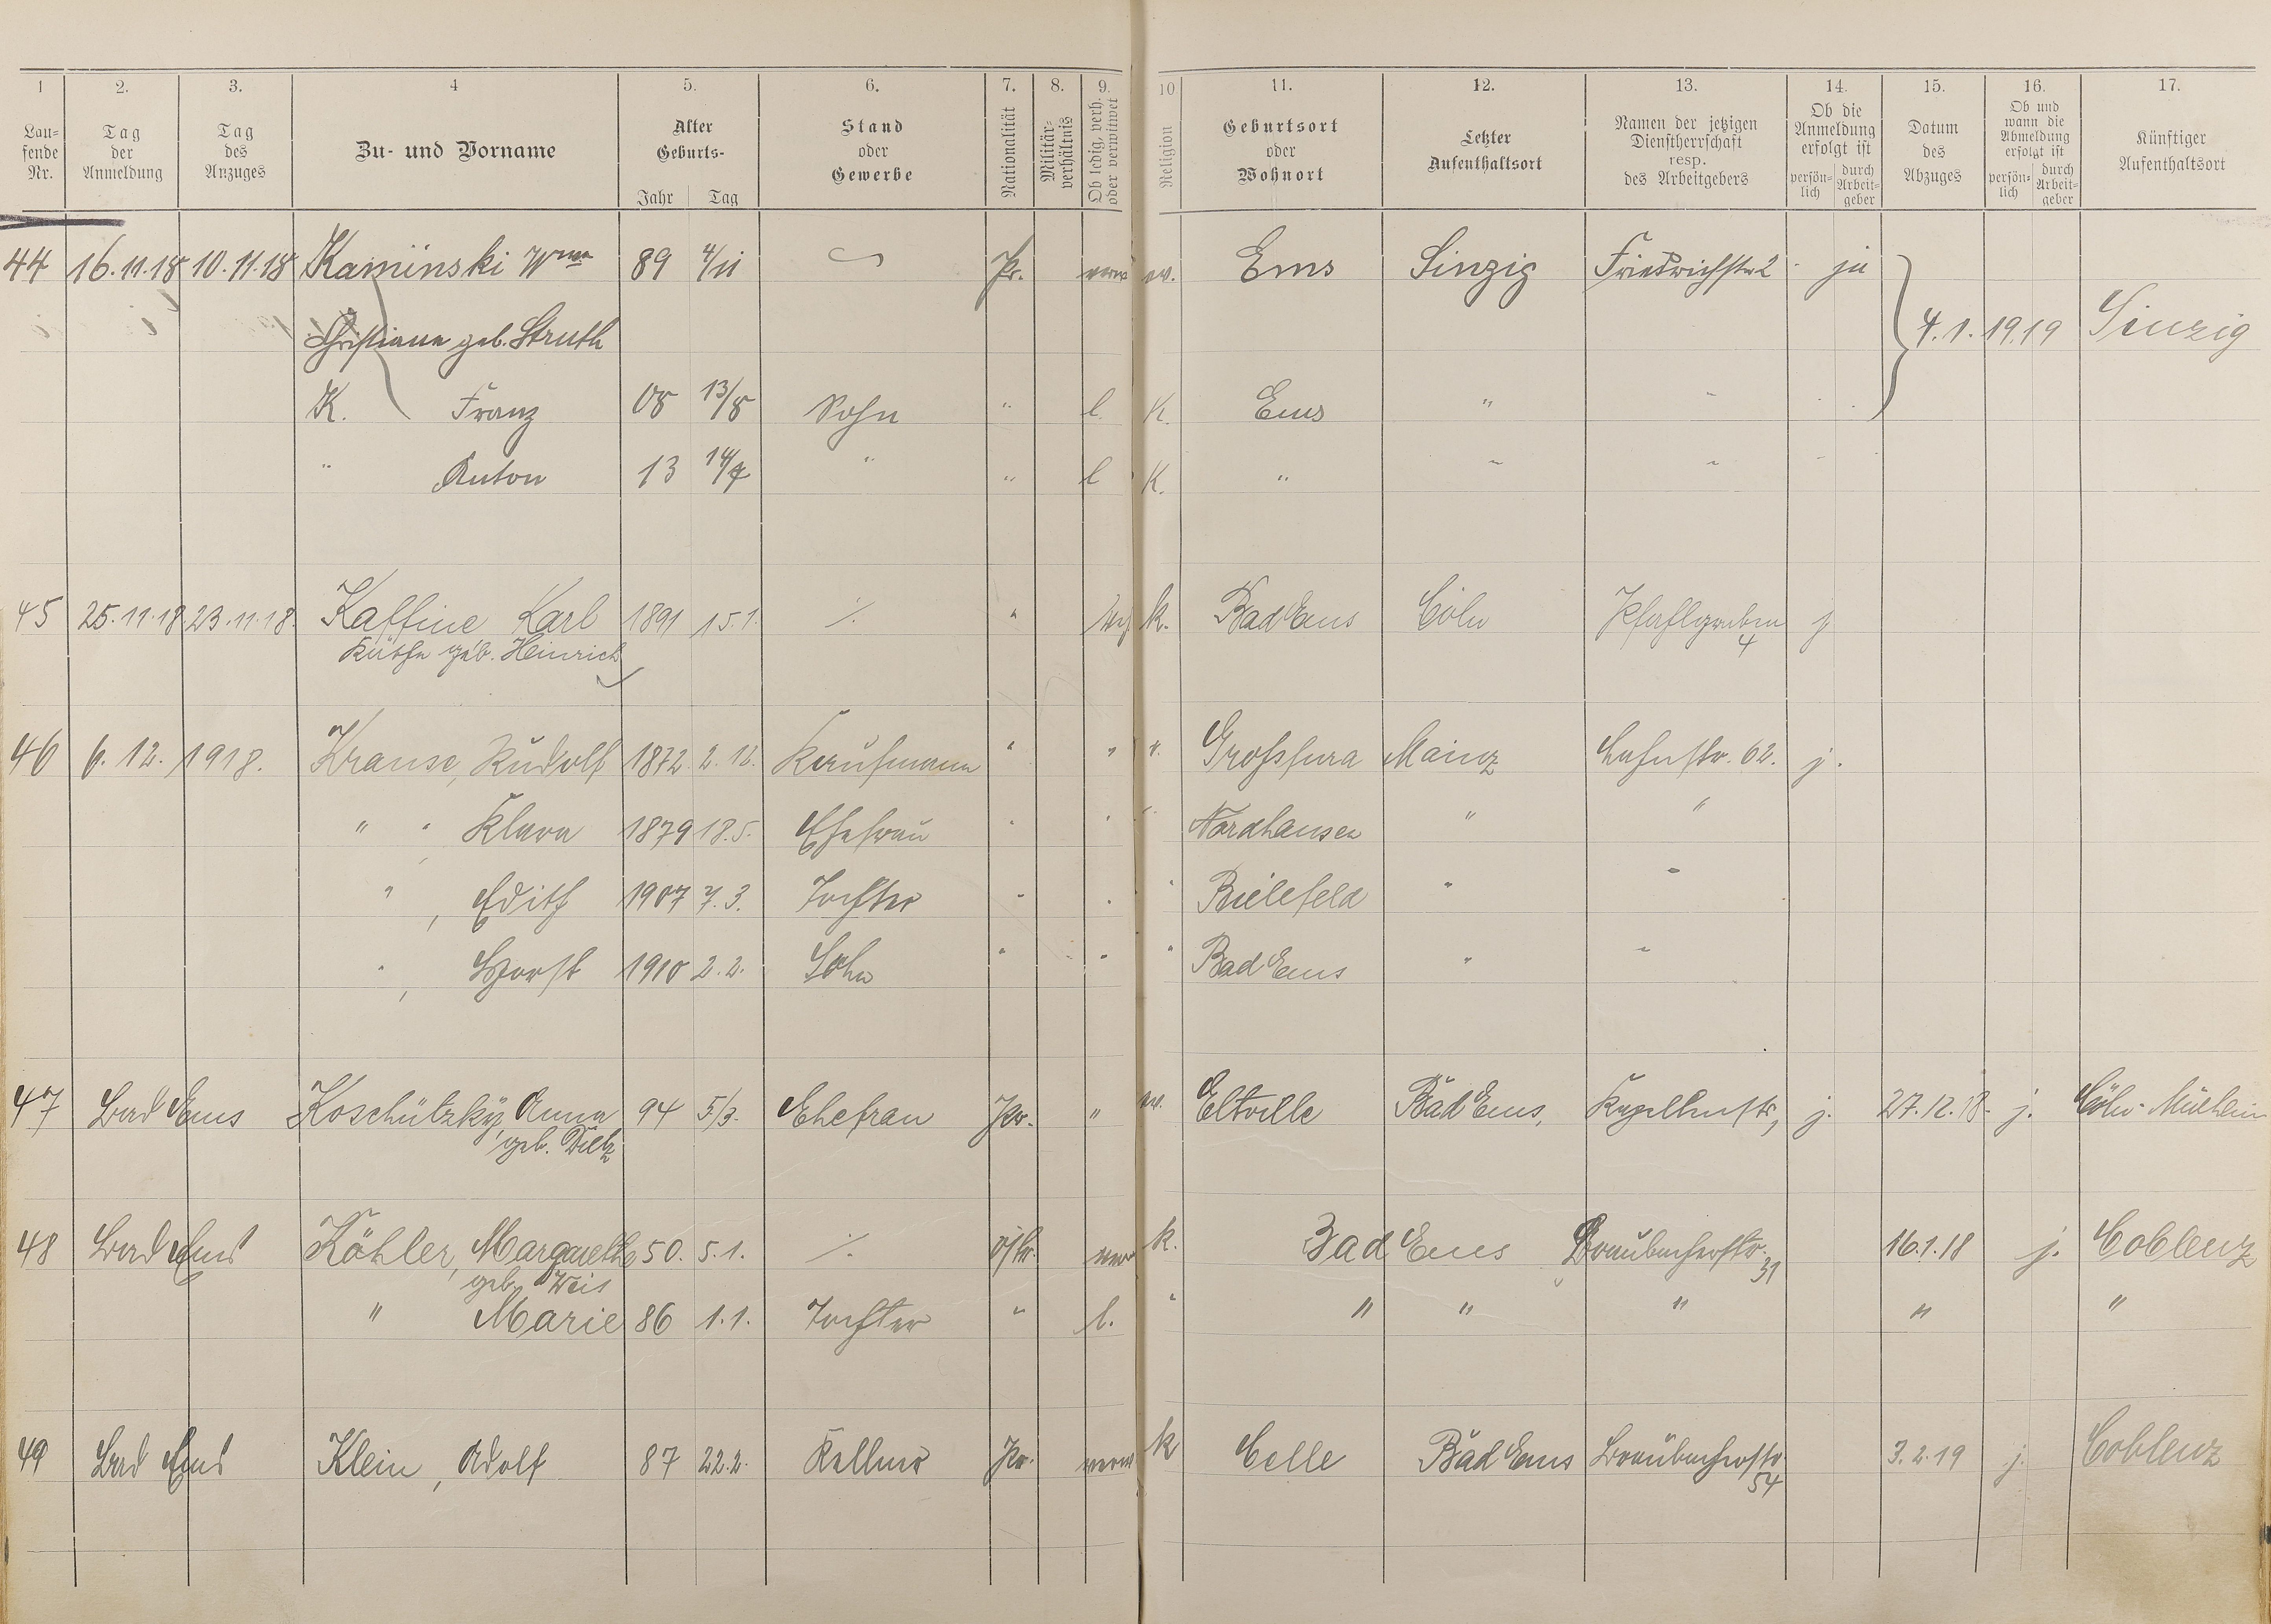 1 2. 3. 4 5. 6. 7. 8. 9. 10 11. 12. 13. 14. 15. 16. 17.
Lau-
fende
Nr.
Tag
der
Anmeldung
Tag
des
Anzuges
Zu- und Vorname
Alter
Geburts-
Jahr Tag
Stand
oder
Gewerbe
Nationalität
Militär-
verhältnis
Ob ledig, verh.
oder verwitwet
Religion
Geburtsort
oder
Wohnort
Letzter
Aufenthaltsort
Namen der jetzigen
Dienstherrschaft
resp.
des Arbeitgebers
Ob die
Anmeldung
erfolgt ist
persön-
lich
durch
Arbeit-
geber
Datum
des
Abzuges
Ob und
wann die
Abmeldung
erfolgt ist
persön-
lich
durch
Arbeit-
geber
Künftiger
Aufenthaltsort
44 16.11.18 10.11.18 Kaminski Wwe 89 4/11 Pr. verw ev. Ems Sinzig Friedrichstr 2 ja
Christiane geb. Struth 4.1.1919 Sinzig
K. Franz 08 13/8 Sohn " l. K. Ems " "
" Anton 13 14/4 " " l K. " " "
45 25.11.18 23.11.18. Kaffine Karl 1891 15.1. ./. " k. Bad Ems Cöln Pfahlgraben j
Käthe geb. Heinrich 4
46 6.12.1918. Krause, Rudolf 1872. 2.12. Kaufmann " " " Grossfura Mainz Lahnstr. 62. j.
" " Klara 1879 18.5. Ehefrau " " " Nordhausen " "
" , Edith 1907 7.3. Tochter " " " Bielefeld " "
" , Horst 1910 2.2. Sohn " " " Bad Ems " "
47 Bad Ems Koschützky, Anna 94 5/3. Ehefrau Pr. " ev. Eltville Bad Ems, j. 27.12.18. j. Cöln-Mülheim
geb. Dietz
48 Bad Ems Köhler, Margarethe 50. 5.1. ./. verw k. Bad Ems Braubacherstr. 16.1.18 j. Coblenz
geb. Weis 31
" Marie 86 1.1. Tochter " l. " " " " " "
49 Bad Ems Klein, Adolf 87 22.2. Kellner Pr. verw k Celle Bad Ems Braubacherstr. 3.2.19 j. Coblenz
54